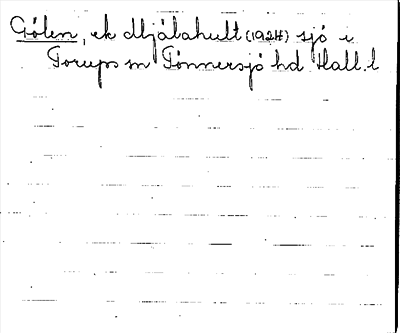 Gölen, ek Mjälahult (1924) sjö i
Torups sn Tönnersjö hd Hall. l